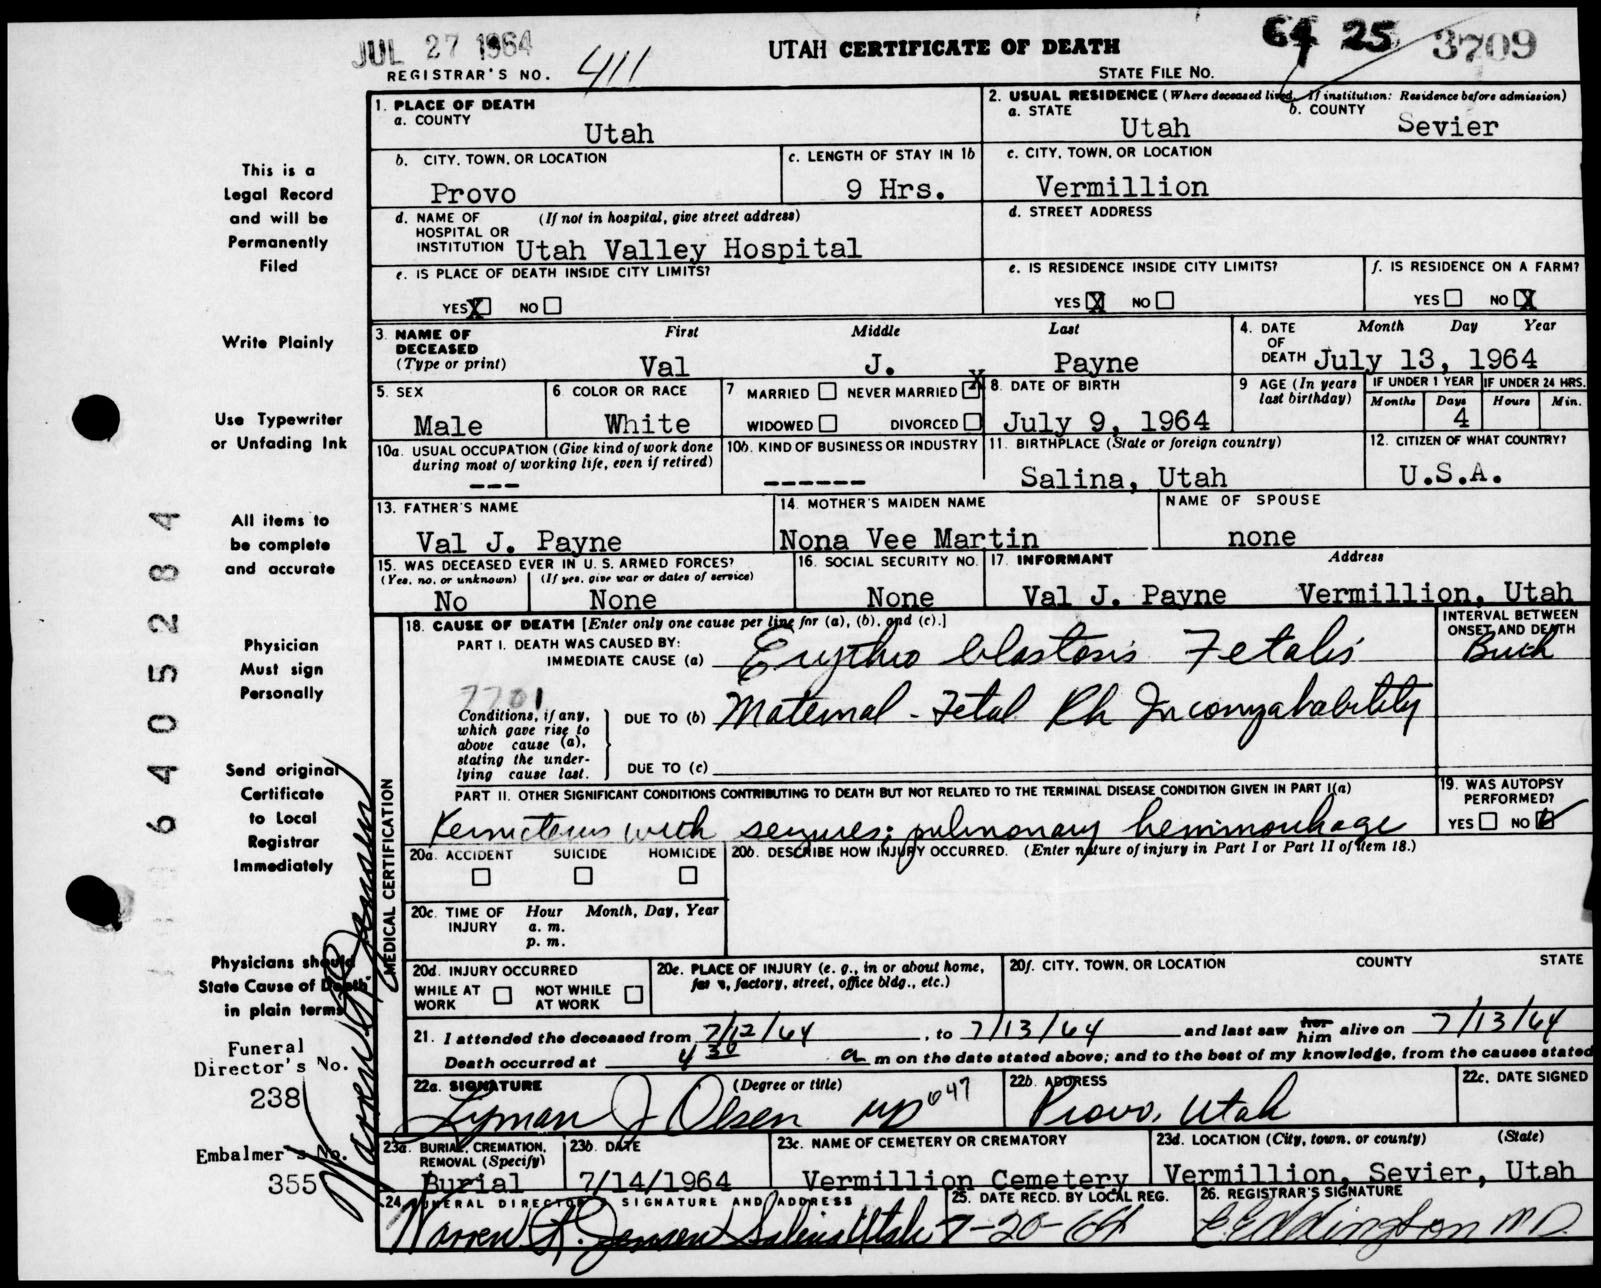 JUL 27 1964
REGISTRAR'S NO. 411
UTAH CERTIFICATE OF DEATH
64 25 3709
STATE FILE NO.
1. PLACE OF DEATH
a. COUNTY
Utah
2. USUAL RESIDENCE (Where deceased lived. If institution: Residence before admission)
a. STATE
Utah
b. COUNTY
Sevier
b. CITY, TOWN, OR LOCATION
Provo
c. LENGTH OF STAY IN 1b
9 Hrs.
c. CITY, TOWN, OR LOCATION
Vermillion
d. NAME OF (If not in hospital, give street address)
HOSPITAL OR
INSTITUTION Utah Valley Hospital
d. STREET ADDRESS
e. IS PLACE OF DEATH INSIDE CITY LIMITS?
YES X NO
e. IS RESIDENCE INSIDE CITY LIMITS?
YES X NO
f. IS RESIDENCE ON A FARM?
YES NO X
3. NAME OF
DECEASED
(Type or print)
First Middle Last
Val J. Payne
4. DATE
OF
DEATH
Month Day Year
July 13, 1964
5. SEX
Male
6. COLOR OR RACE
White
7 MARRIED NEVER MARRIED X
WIDOWED DIVORCED
8. DATE OF BIRTH
July 9, 1964
9 AGE (In years
last birthday)
IF UNDER 1 YEAR IF UNDER 24 HRS.
Months Days Hours Min.
4
10a. USUAL OCCUPATION (Give kind of work done
during most of working life, even if retired)
---
10b. KIND OF BUSINESS OR INDUSTRY
------
11. BIRTHPLACE (State or foreign country)
Salina, Utah
12. CITIZEN OF WHAT COUNTRY?
U.S.A.
13. FATHER'S NAME
Val J. Payne
14. MOTHER'S MAIDEN NAME
Nona Vee Martin
NAME OF SPOUSE
none
15. WAS DECEASED EVER IN U.S. ARMED FORCES?
(Yes, no, or unknown) (If yes, give war or dates of service)
No None
16. SOCIAL SECURITY NO.
None
17. INFORMANT Address
Val J. Payne Vermillion, Utah
MEDICAL CERTIFICATION
18. CAUSE OF DEATH [Enter only one cause per line for (a), (b), and (c).]
INTERVAL BETWEEN
ONSET AND DEATH
PART I. DEATH WAS CAUSED BY:
IMMEDIATE CAUSE (a) Erythro blastosis Fetalis
7701
Conditions, if any,
which gave rise to
above cause (a),
stating the under-
lying cause last.
DUE TO (b) Maternal - Fetal Rh
DUE TO (c)
PART II. OTHER SIGNIFICANT CONDITIONS CONTRIBUTING TO DEATH BUT NOT RELATED TO THE TERMINAL DISEASE CONDITION GIVEN IN PART I(a)
Kernicterus with seizures; pulmonary hemmorrhage
19. WAS AUTOPSY
PERFORMED?
YES NO
20a. ACCIDENT SUICIDE HOMICIDE
20b. DESCRIBE HOW INJURY OCCURRED. (Enter nature of injury in Part I or Part II of item 18.)
20c. TIME OF Hour Month, Day, Year
INJURY a. m.
p. m.
20d. INJURY OCCURRED
WHILE AT NOT WHILE
WORK AT WORK
20e. PLACE OF INJURY (e. g., in or about home,
farm, factory, street, office bldg., etc.)
20f. CITY, TOWN, OR LOCATION COUNTY STATE
21. I attended the deceased from 7/12/64, to 7/13/64 and last saw her him alive on 7/13/64
Death occurred at 4 30 a m on the date stated above; and to the best of my knowledge, from the causes stated
22a. SIGNATURE (Degree or title)
Lyman J Olsen MD 047
22b. ADDRESS
Provo, Utah
22c. DATE SIGNED
23a. BURIAL, CREMATION,
REMOVAL (Specify)
Burial
23b. DATE
7/14/1964
23c. NAME OF CEMETERY OR CREMATORY
Vermillion Cemetery
23d. LOCATION (City, town, or county) (State)
Vermillion, Sevier, Utah
24 FUNERAL DIRECTOR'S SIGNATURE AND ADDRESS
Warren R. Jensen Salina Utah
25. DATE RECD. BY LOCAL REG.
7-20-64
26. REGISTRAR'S SIGNATURE
Eddington M.D.
This is a
Legal Record
and will be
Permanently
Filed
Write Plainly
Use Typewriter
or Unfading Ink
All items to
be complete
and accurate
Physician
Must sign
Personally
Send original
Certificate
to Local
Registrar
Immediately
Physicians should
State Cause of Death
in plain terms
Funeral
Director's No.
238
Embalmer's No.
355
Warren R Jensen
6405284